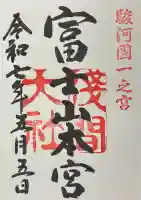 駿河國一之宮
富士山本宮
淺間
大社
令和七年五月五日